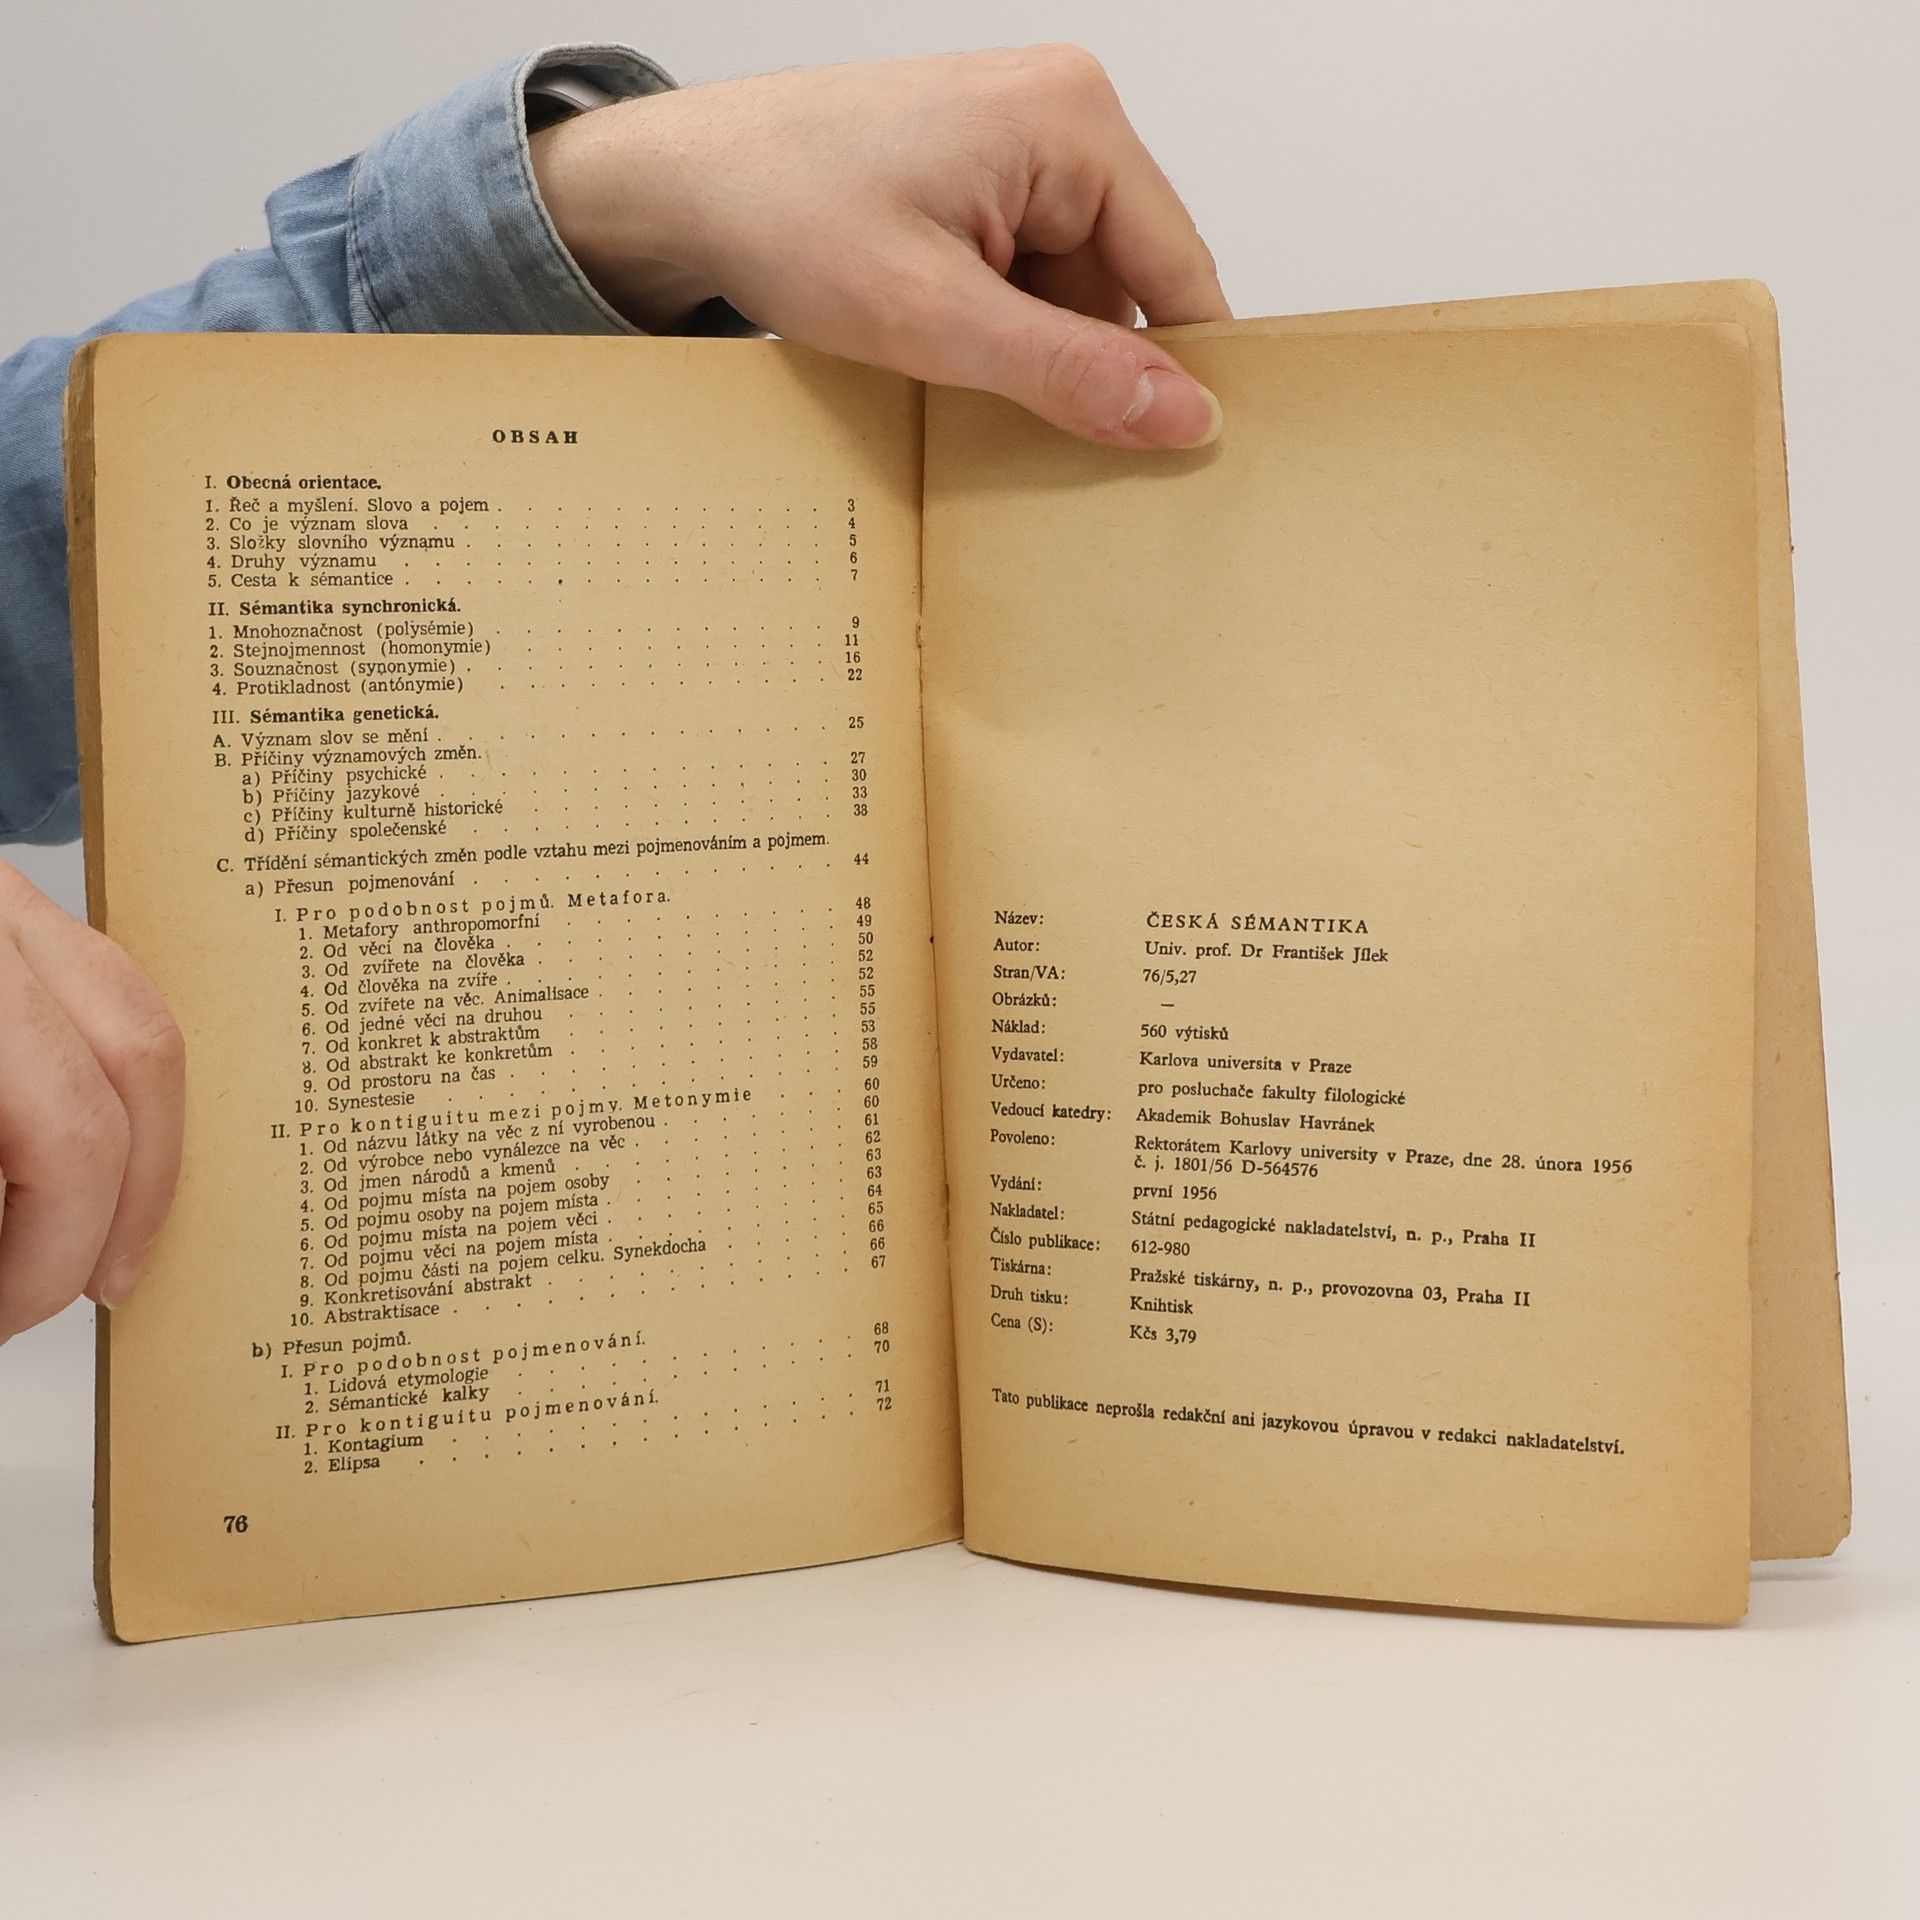 OBSAH
I. Obecná orientace.
1. Řeč a myšlení. Slovo a pojem . . . . . . . . . . . . 3
2. Co je význam slova . . . . . . . . . . . . . . 4
3. Složky slovního významu . . . . . . . . . . . . . 5
4. Druhy významu . . . . . . . . . . . . . . . 6
5. Cesta k sémantice . . . . . . . . . . . . . . . 7
II. Sémantika synchronická.
1. Mnohoznačnost (polysémie) . . . . . . . . . . . . 9
2. Stejnojmennost (homonymie) . . . . . . . . . . . 11
3. Souznačnost (synonymie) . . . . . . . . . . . . . 16
4. Protikladnost (antónymie) . . . . . . . . . . . . 22
III. Sémantika genetická.
A. Význam slov se mění . . . . . . . . . . . . . . 25
B. Příčiny významových změn.
a) Příčiny psychické . . . . . . . . . . . . . . 27
b) Příčiny jazykové . . . . . . . . . . . . . . 30
c) Příčiny kulturně historické . . . . . . . . . . . 33
d) Příčiny společenské . . . . . . . . . . . . . 38
C. Třídění sémantických změn podle vztahu mezi pojmenováním a pojmem.
a) Přesun pojmenování . . . . . . . . . . . . . 44
I. Pro podobnost pojmů. Metafora.
1. Metafory anthropomorfní . . . . . . . . . . 48
2. Od věcí na člověka . . . . . . . . . . . . 49
3. Od zvířete na člověka . . . . . . . . . . . 50
4. Od člověka na zvíře . . . . . . . . . . . . 52
5. Od zvířete na věc. Animalisace . . . . . . . . . 52
6. Od jedné věci na druhou . . . . . . . . . . 55
7. Od konkret k abstraktům . . . . . . . . . . 55
8. Od abstrakt ke konkretům . . . . . . . . . . 53
9. Od prostoru na čas . . . . . . . . . . . . 58
10. Synestesie . . . . . . . . . . . . . . 59
II. Pro kontiguitu mezi pojmy. Metonymie . . . 60
1. Od názvu látky na věc z ní vyrobenou . . . . . . . 60
2. Od výrobce nebo vynálezce na věc . . . . . . . . 61
3. Od jmen národů a kmenů . . . . . . . . . . 62
4. Od pojmu místa na pojem osoby . . . . . . . . 63
5. Od pojmu osoby na pojem místa . . . . . . . . . 63
6. Od pojmu místa na pojem věci . . . . . . . . . 64
7. Od pojmu věci na pojem místa . . . . . . . . . 65
8. Od pojmu části na pojem celku. Synekdocha . . . . . 66
9. Konkretisování abstrakt . . . . . . . . . . . 66
10. Abstraktisace . . . . . . . . . . . . . . 67
b) Přesun pojmů.
I. Pro podobnost pojmenování.
1. Lidová etymologie . . . . . . . . . . . . 68
2. Sémantické kalky . . . . . . . . . . . . 70
II. Pro kontiguitu pojmenování.
1. Kontagium . . . . . . . . . . . . . . 71
2. Elipsa . . . . . . . . . . . . . . . 72
76
Název: ČESKÁ SÉMANTIKA
Autor: Univ. prof. Dr František Jílek
Stran/VA: 76/5,27
Obrázků: —
Náklad: 560 výtisků
Vydavatel: Karlova universita v Praze
Určeno: pro posluchače fakulty filologické
Vedoucí katedry: Akademik Bohuslav Havránek
Povoleno: Rektorátem Karlovy university v Praze, dne 28. února 1956
č. j. 1801/56 D-564576
Vydání: první 1956
Nakladatel: Státní pedagogické nakladatelství, n. p., Praha II
Číslo publikace: 612-980
Tiskárna: Pražské tiskárny, n. p., provozovna 03, Praha II
Druh tisku: Knihtisk
Cena (S): Kčs 3,79
Tato publikace neprošla redakční ani jazykovou úpravou v redakci nakladatelství.